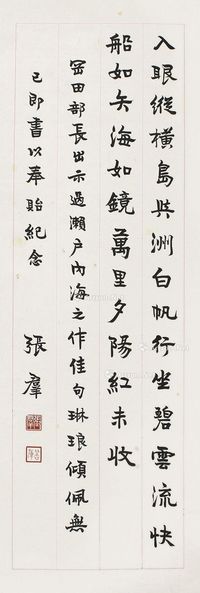 入眼縱橫島與洲白帆行坐碧雲流快
船如矢海如鏡萬里夕陽紅未收
岡田部長出示過瀨戶內海之作佳句琳琅傾佩無
已即書以奉貽紀念
張羣